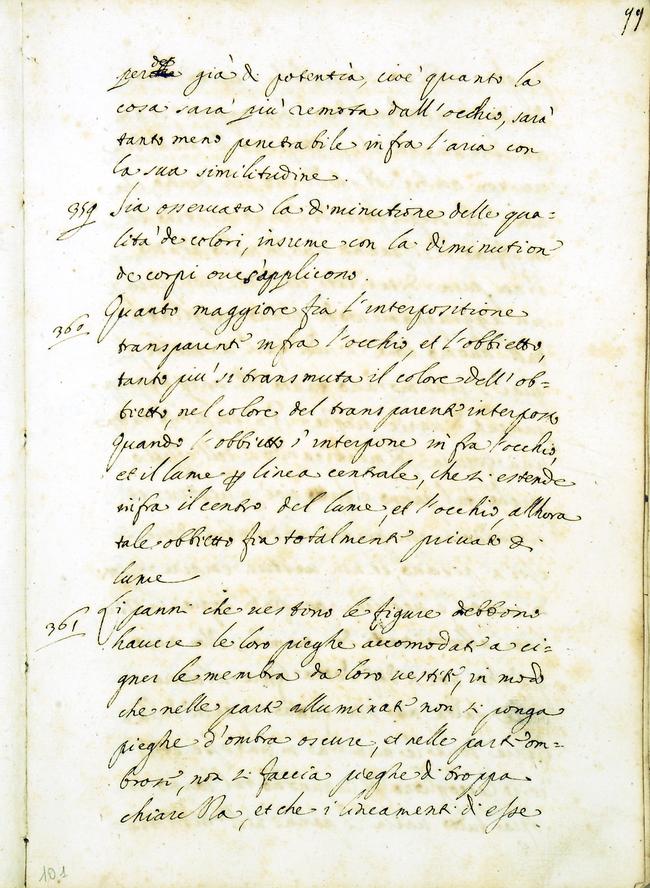 99
perde già di potentia, cioè quanto la
cosa sarà più remota dall'occhio, sarà
tanto meno penetrabile infra l'aria con
la sua similitudine.
359 Sia osseruata la diminutione delle qua=
lità de colori, insieme con la diminution
de corpi oue s'applicono.
360 Quanto maggiore fia l'interpositione
transparente infra l'occhio, et l'obbietto,
tanto più si transmuta il colore dell'ob=
bietto, nel colore del transparente interposto
Quando l'obbietto s'interpone infra l'occhio,
et il lume ꝑ linea centrale, che si estende
infra il centro del lume, et l'occhio, allhora
tale obbietto fia totalmente priuato di
lume
361 Li panni che uestono le figure debbono
hauere le loro pieghe accomodate a ci=
gner le membra da loro uestite, in modo
che nelle parte alluminate non si ponga
pieghe d'ombra oscure, et nelle parte om=
brose, non si faccia pieghe di troppa
chiarezza, et che i lineamenti di esse
101